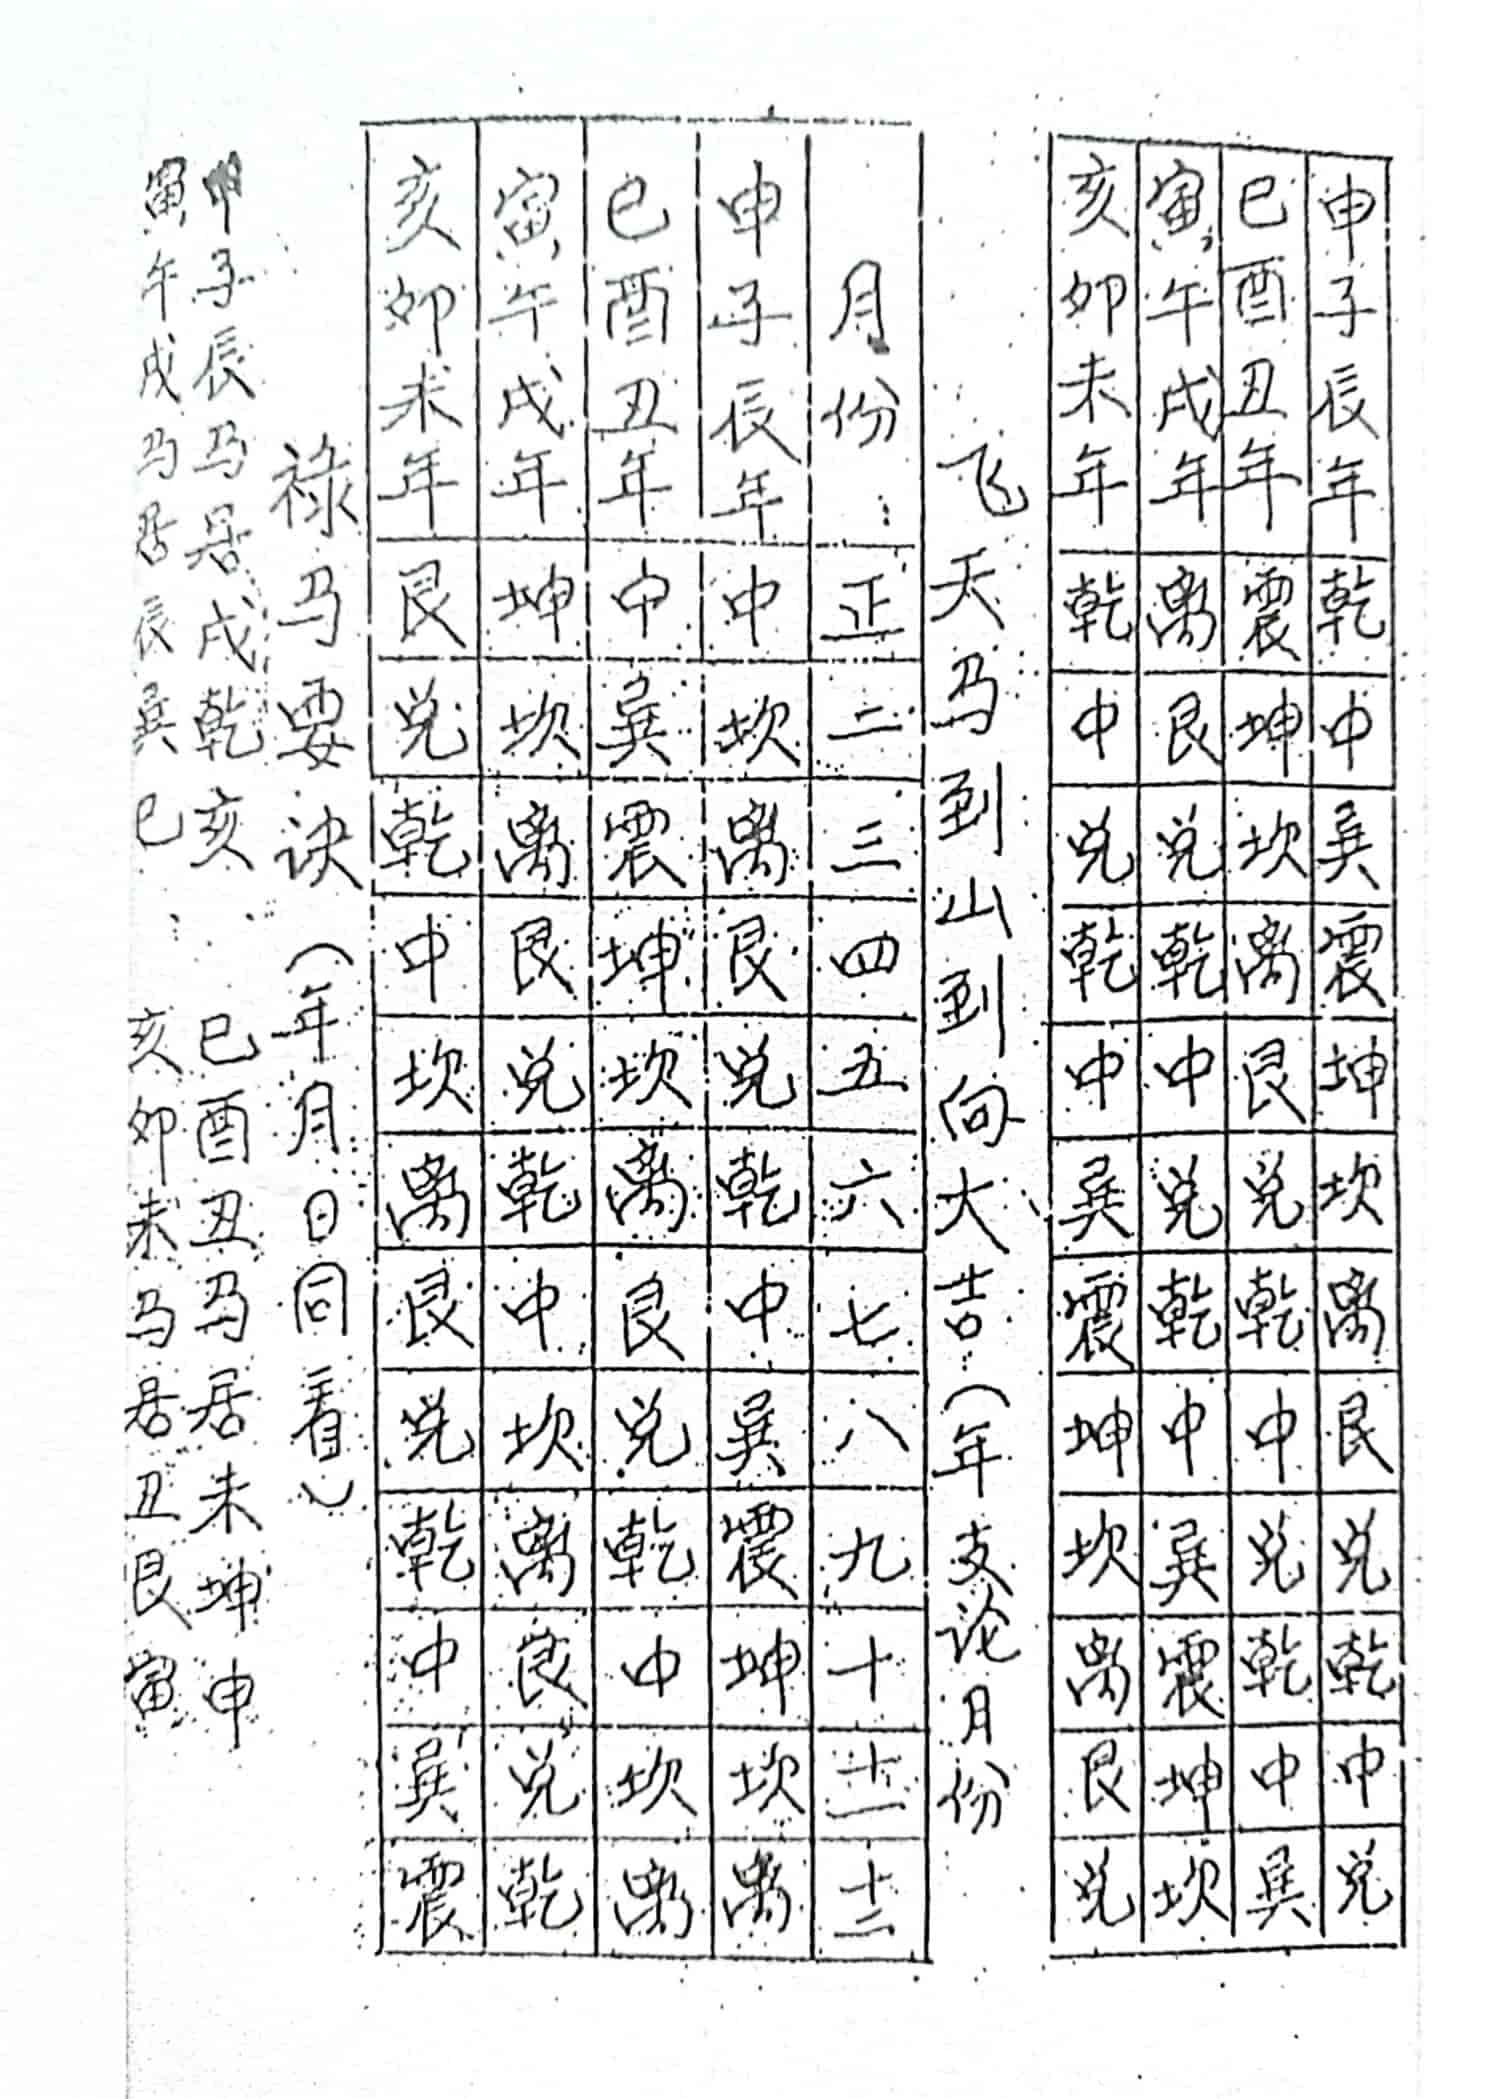 申子辰年 乾 中 巽 震 坤 坎 离 艮 兑 乾 中 兑
巳酉丑年 震 坤 坎 离 艮 兑 乾 中 兑 乾 中 巽
寅午戌年 离 艮 兑 乾 中 兑 乾 中 巽 震 坤 坎
亥卯未年 乾 中 兑 乾 中 巽 震 坤 坎 离 艮 兑
飞天马到山到向大吉(年支论月份
月份 正 二 三 四 五 六 七 八 九 十 十一 十二
申子辰年 中 坎 离 艮 兑 乾 中 巽 震 坤 坎 离
巳酉丑年 中 巽 震 坤 坎 离 艮 兑 乾 中 坎 离
寅午戌年 坤 坎 离 艮 兑 乾 中 坎 离 艮 兑 乾
亥卯未年 艮 兑 乾 中 坎 离 艮 兑 乾 中 巽 震
禄马要诀(年月日同看)
申子辰马居戌乾亥 巳酉丑马居未坤申
寅午戌马居辰巽巳 亥卯未马居丑艮寅